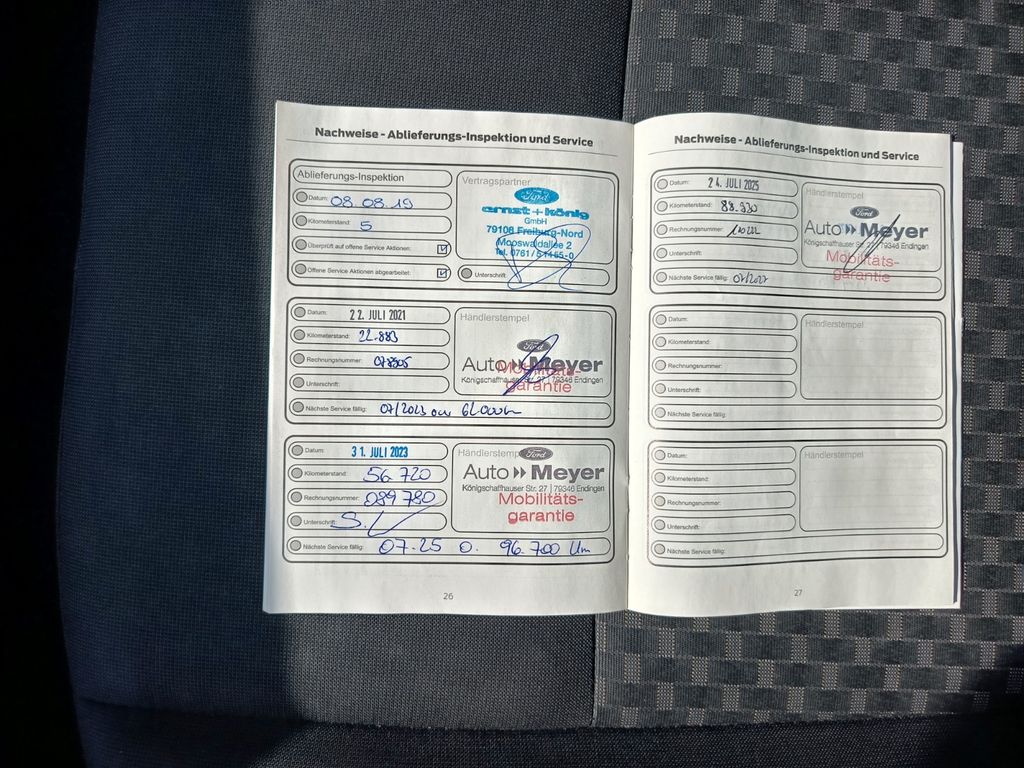 Nachweise - Ablieferungs-Inspektion und Service
Ablieferungs-Inspektion
Datum: 08.08.19
Kilometerstand: 5
Überprüft auf offene Service Aktionen:
Offene Service Aktionen abgearbeitet:
Vertragspartner
Ford
ernst+könig
GmbH
79108 Freiburg-Nord
Mooswaldallee 2
Tel. 0761/
Unterschrift:
Datum: 22. JULI 2021
Kilometerstand: 22.883
Rechnungsnummer:
Unterschrift:
Händlerstempel
Ford
Auto Meyer
Königschaffhauser Str. 27 | 79346 Endingen
Mobilitäts-
garantie
Nächste Service fällig: 07/2023
Datum: 31. JULI 2023
Kilometerstand: 56.720
Rechnungsnummer: 089780
Unterschrift:
Händlerstemp
Ford
Auto Meyer
Königschaffhauser Str. 27 | 79346 Endingen
Mobilitäts-
garantie
Nächste Service fällig: 07.25 o. 96.700 km
26
Nachweise - Ablieferungs-Inspektion und Service
Datum: 24. JULI 2025
Kilometerstand: 88.930
Rechnungsnummer:
Unterschrift:
Nächste Service fällig: 07/2027
Händlerstempel
Ford
Auto Meyer
Königschaffhauser Str. 27 | 79346 Endingen
Mobilitäts-
garantie
Datum:
Kilometerstand:
Rechnungsnummer:
Unterschrift:
Nächste Service fällig:
Händlerstempel
Datum:
Kilometerstand:
Rechnungsnummer:
Unterschrift:
Nächste Service fällig:
Händlerstempel
27